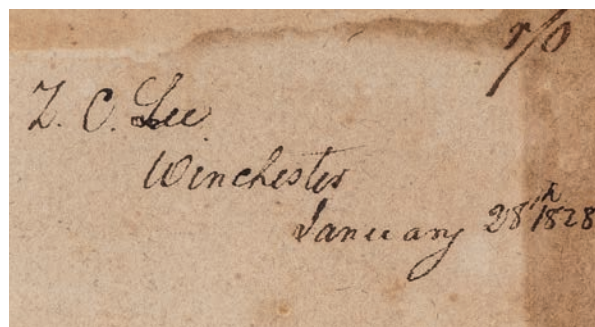 Z. C. Lee
Winchester
January 28th 1828